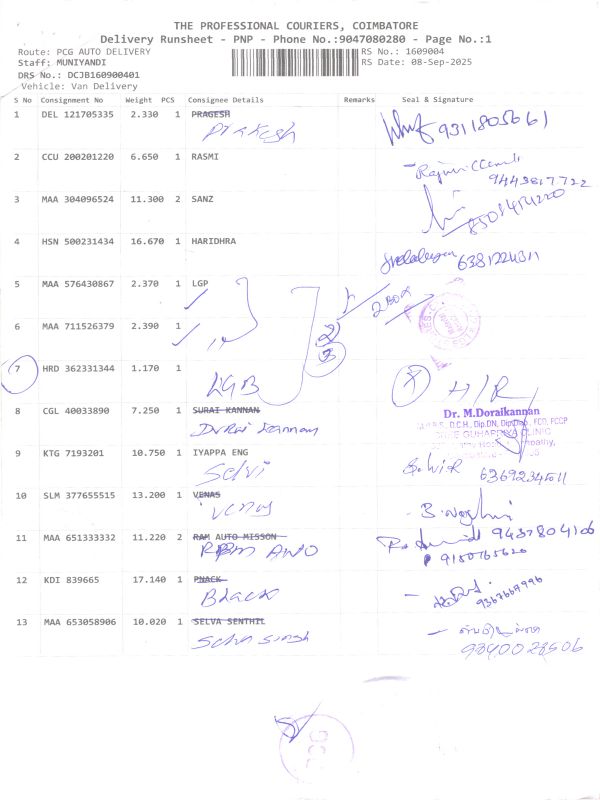 THE PROFESSIONAL COURIERS, COIMBATORE
Delivery Runsheet - PNP - Phone No.:9047080280 - Page No.:1
Route: PCG AUTO DELIVERY
RS No.: 1609004
Staff: MUNIYANDI
RS Date: 08-Sep-2025
DRS No.: DCJB160900401
Vehicle: Van Delivery
S No Consignment No Weight PCS Consignee Details Remarks Seal & Signature
1 DEL 121705335 2.330 1 PRAGESH
Prakesh
9311805661
2 CCU 200201220 6.650 1 RASMI
9443817722
3 MAA 304096524 11.300 2 SANZ
4 HSN 500231434 16.670 1 HARIDHRA
6381224311
5 MAA 576430867 2.370 1 LGP
2 BOX
6 MAA 711526379 2.390 1
7 HRD 362331344 1.170 1
LGB
H/R
8 CGL 40033890 7.250 1 SURAI KANNAN
Durai Kannan
Dr. M.Doraikannan
9 KTG 7193201 10.750 1 IYAPPA ENG
Selvi
10 SLM 377655515 13.200 1 VENAS
Venus
11 MAA 651333332 11.220 2 RAM AUTO MISSON
RBM AUTO
9437804106
9180765620
12 KDI 839665 17.140 1 PNACK
Black
9367669996
13 MAA 653058906 10.020 1 SELVA SENTHIL
Selva Singh
9840028506